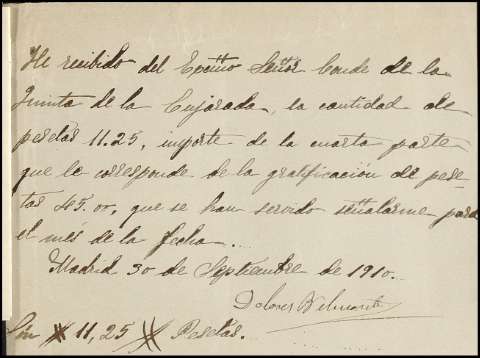 He recibido del Excmo Señor Conde de la
Quinta de la Enjarada, la cantidad de
pesetas 11.25, importe de la cuarta parte
que le corresponde de la gratificación de pese-
tas 45.00, que se han servido señalarme para
el més de la fecha.
Madrid 30 de Septiembre de 1910.
Dolores Belmonte
Son # 11,25 # Pesetas.